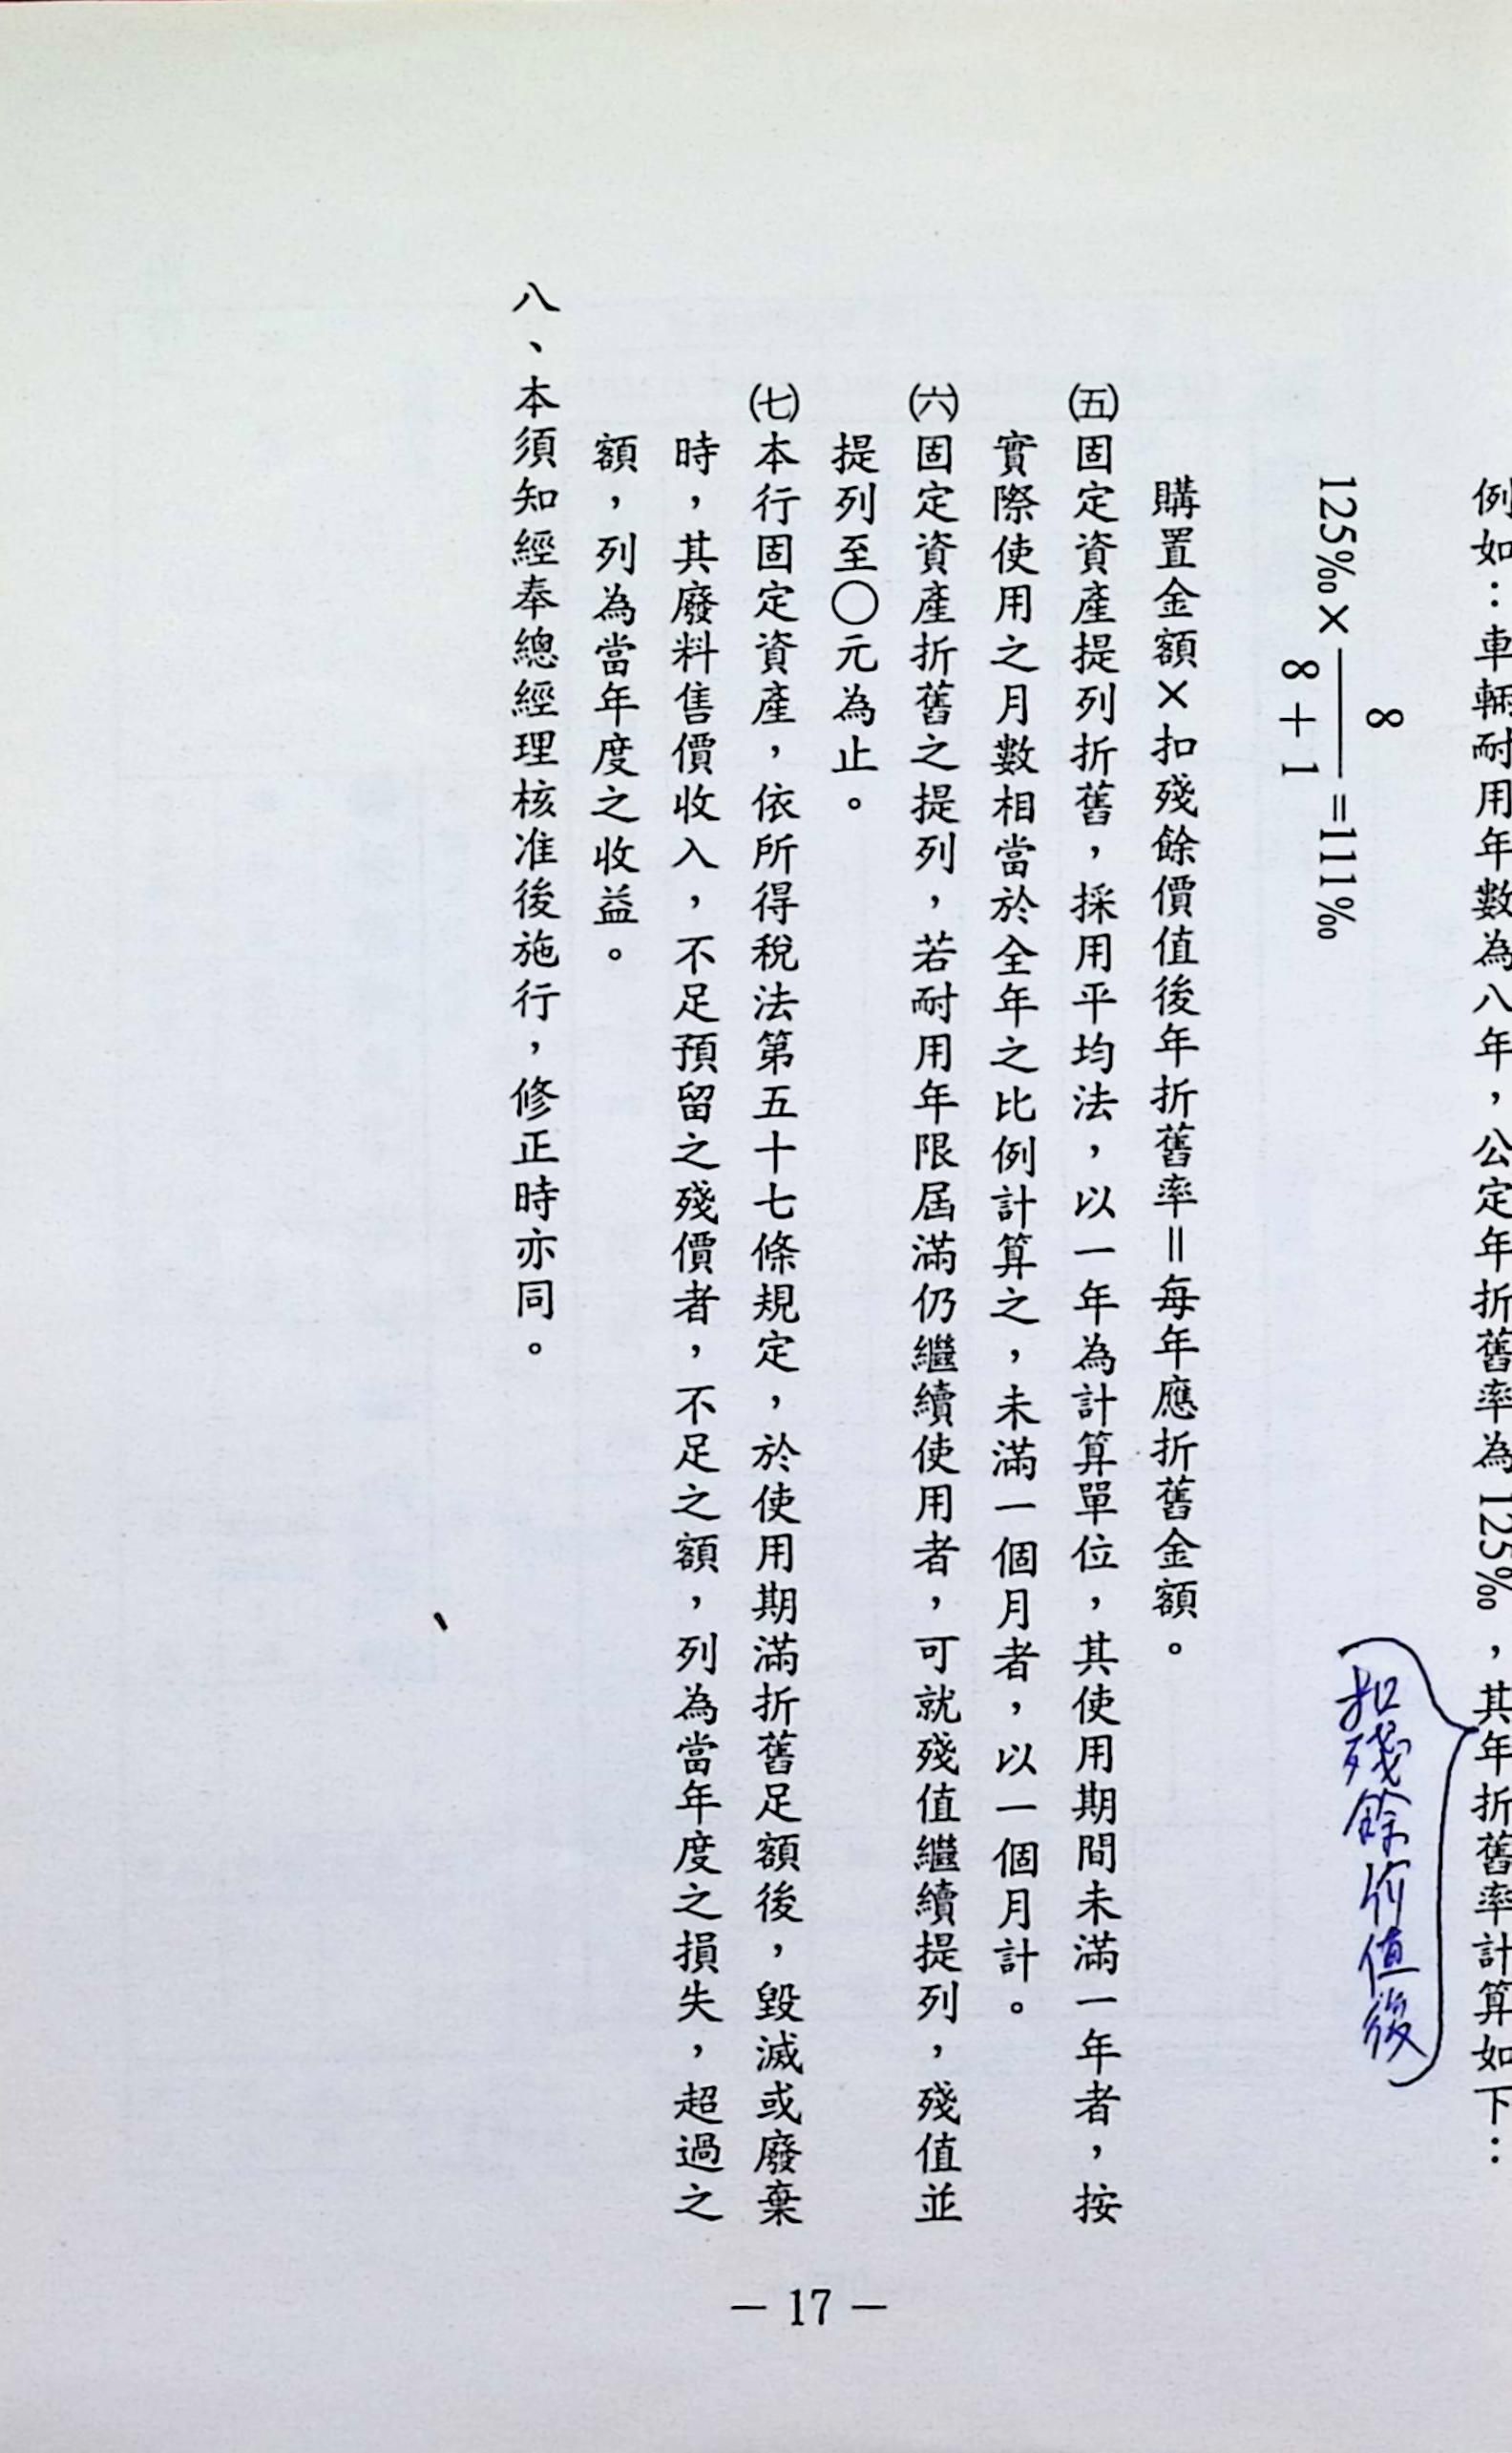 例如：車輛耐用年數為八年，公定年折舊率為125‰，其年折舊率計算如下：
扣殘餘價值後
125‰×8/(8+1)=111‰
購置金額×扣殘餘價值後年折舊率=每年應折舊金額。
㈤固定資產提列折舊，採用平均法，以一年為計算單位，其使用期間未滿一年者，按
實際使用之月數相當於全年之比例計算之，未滿一個月者，以一個月計。
㈥固定資產折舊之提列，若耐用年限屆滿仍繼續使用者，可就殘值繼續提列，殘值並
提列至〇元為止。
㈦本行固定資產，依所得稅法第五十七條規定，於使用期滿折舊足額後，毀滅或廢棄
時，其廢料售價收入，不足預留之殘價者，不足之額，列為當年度之損失，超過之
額，列為當年度之收益。
八、本須知經奉總經理核准後施行，修正時亦同。
— 17 —